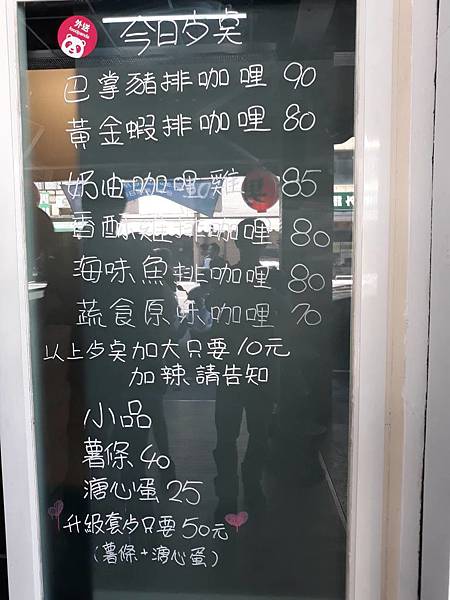 外送
foodpanda
今日歺点
巴掌豬排咖哩 90
黃金蝦排咖哩 80
奶油咖哩雞 85
香酥雞排咖哩 80
海味魚排咖哩 80
蔬食原味咖哩 70
以上歺点加大只要10元
加辣請告知
小品
薯條 40
溏心蛋 25
升級套歺只要50元
(薯條+溏心蛋)